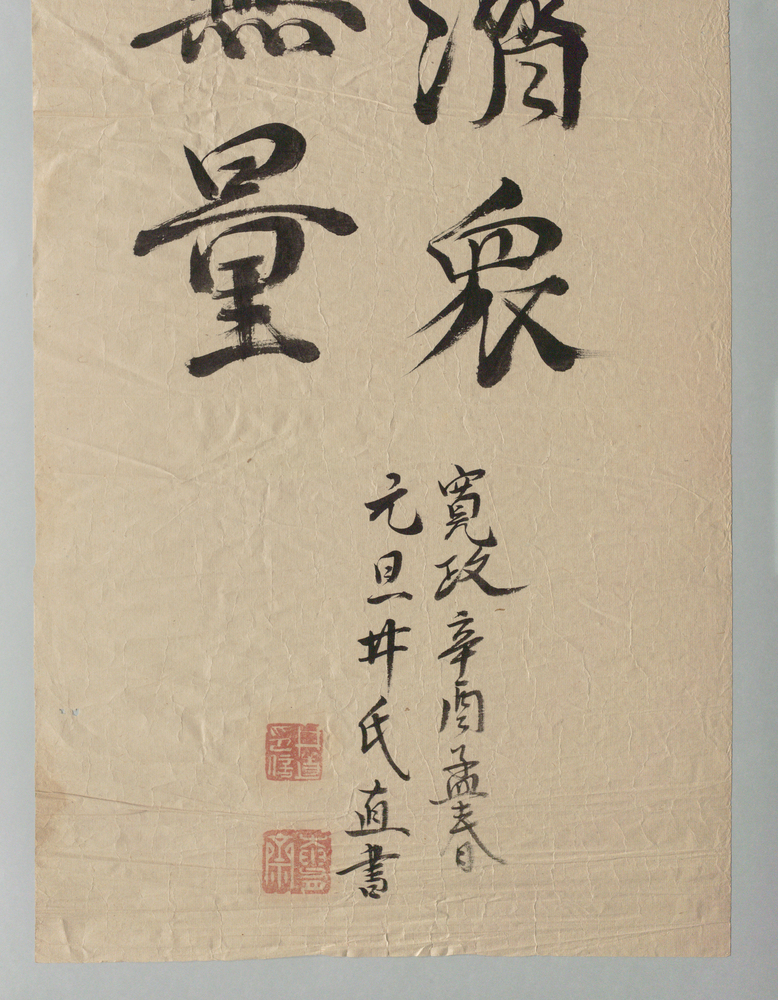 濟衆
無量
寛政辛酉孟春
元旦井氏直書